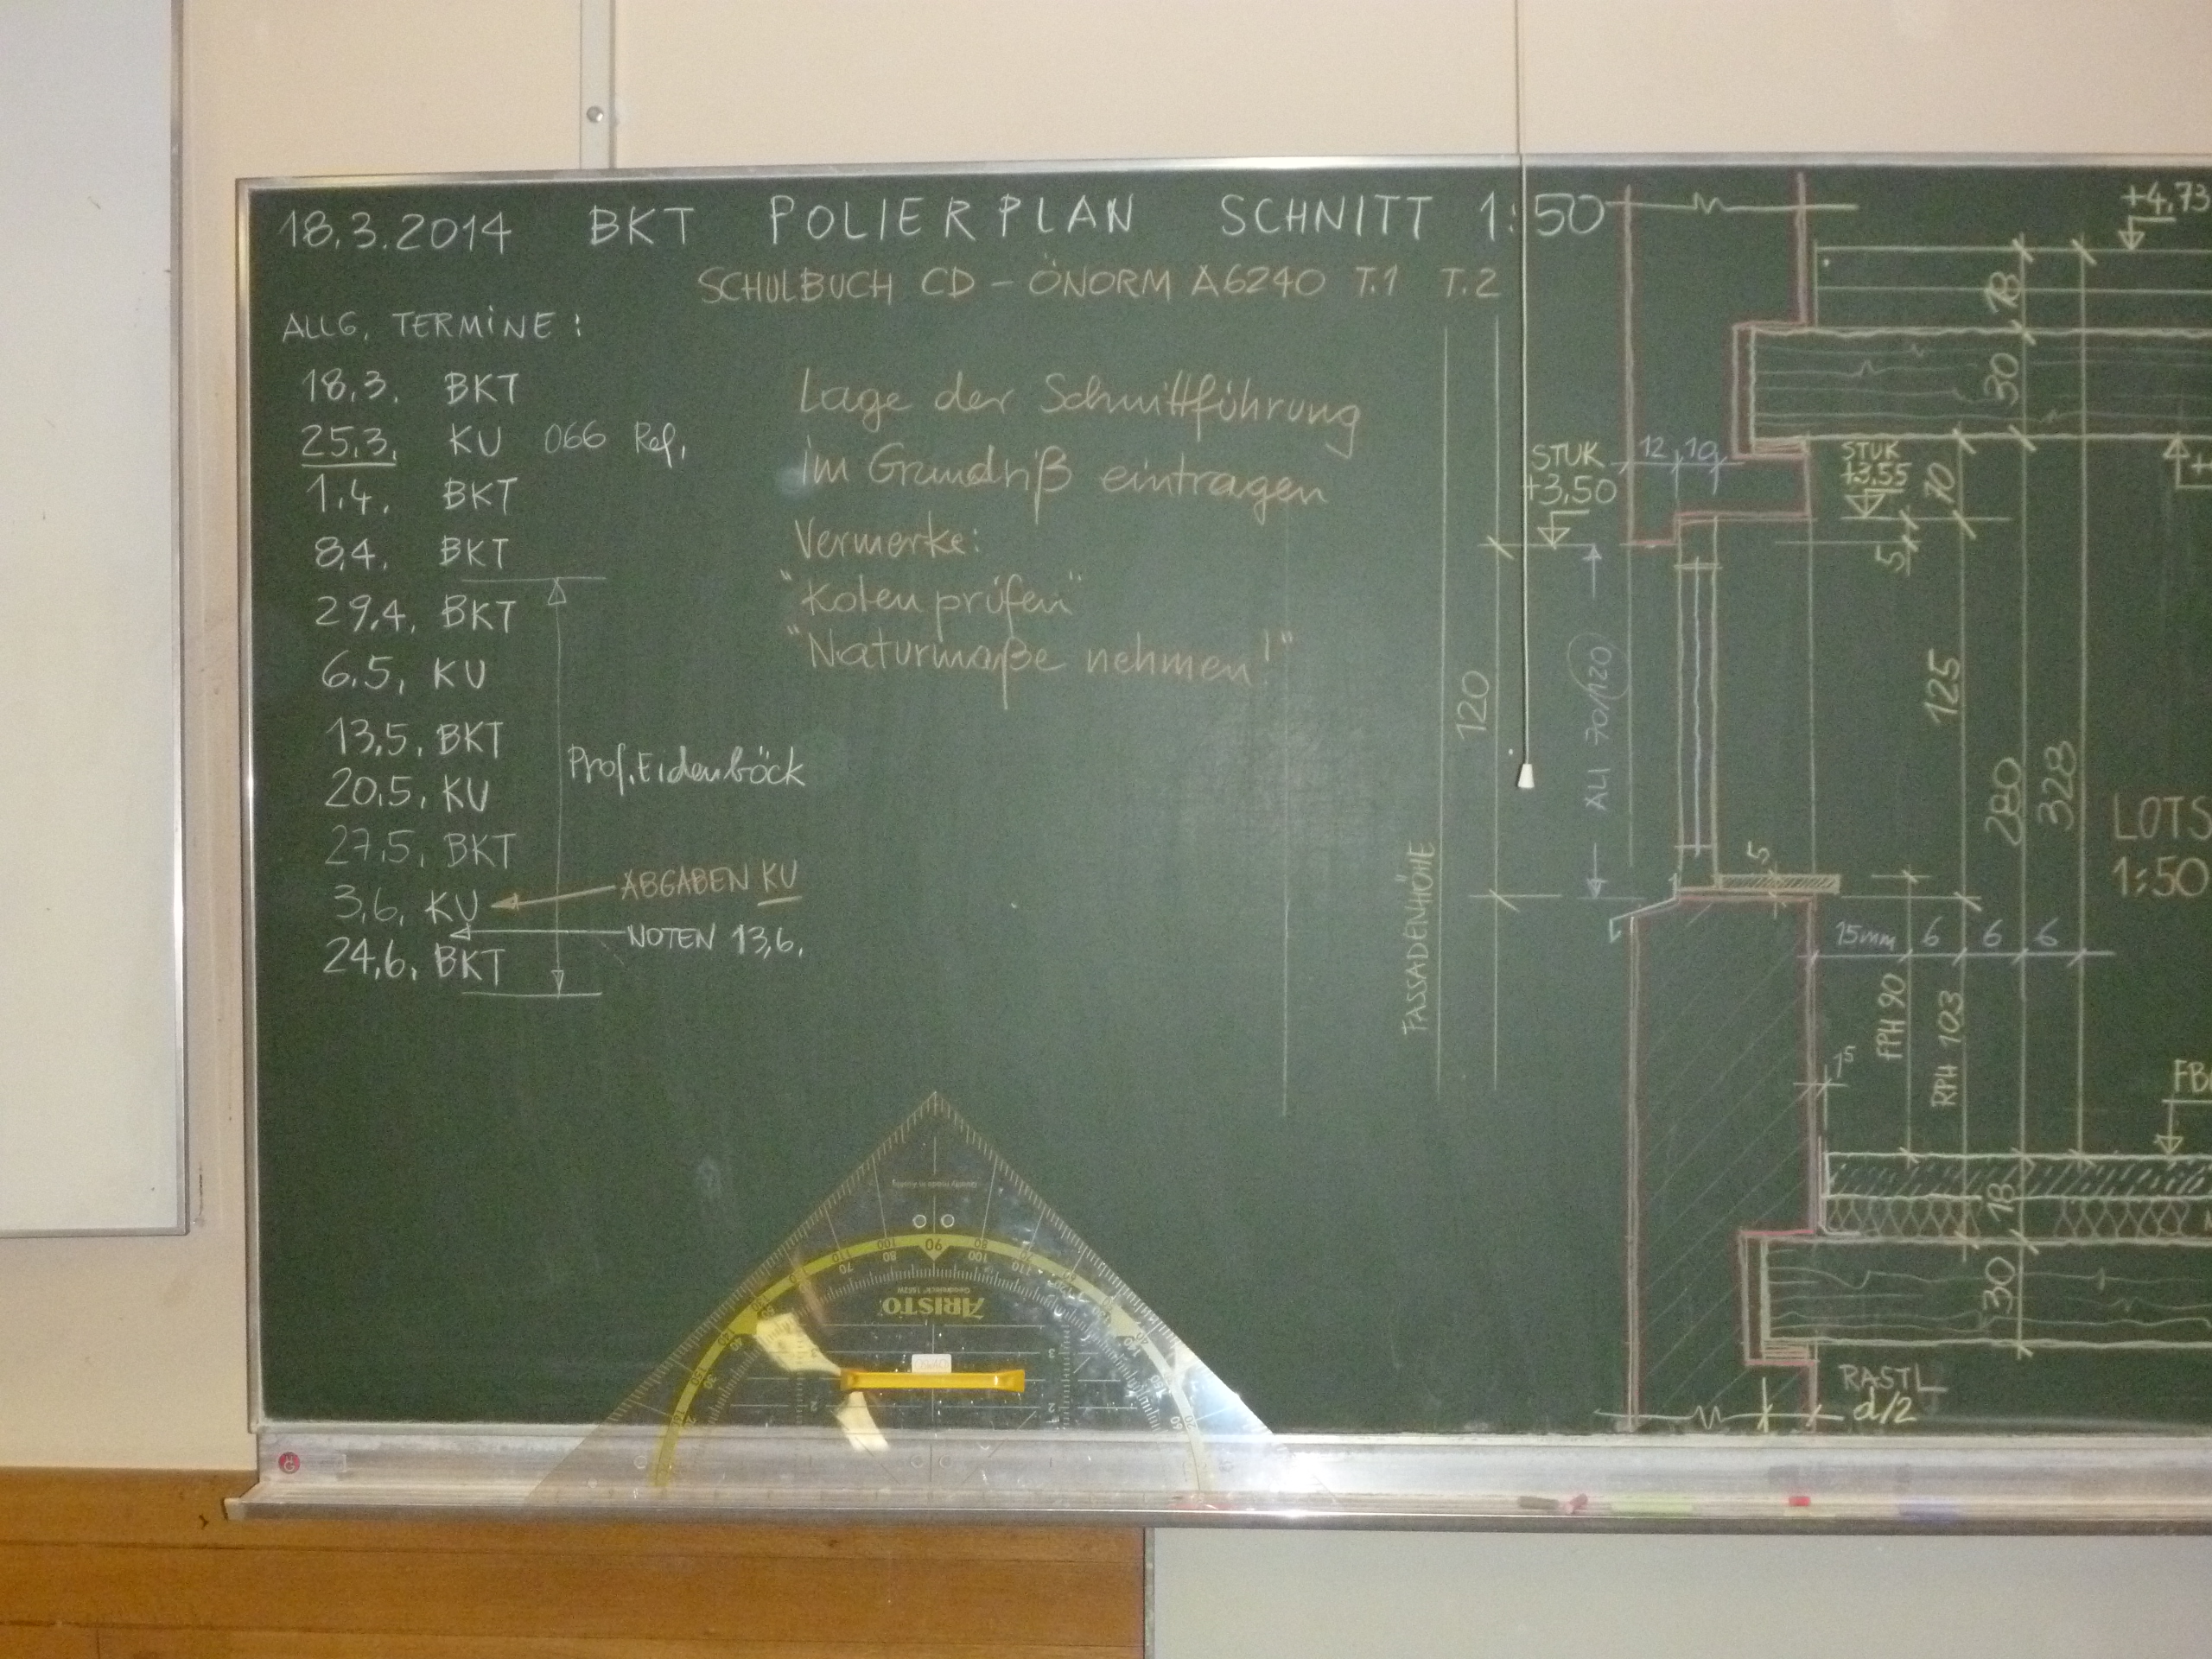 18.3.2014 BKT POLIERPLAN SCHNITT 1:50
SCHULBUCH CD – ÖNORM A6240 T.1 T.2
ALLG. TERMINE:
18.3. BKT
25.3. KU 066 Ref.
1.4. BKT
8.4. BKT
29.4. BKT
6.5. KU
13.5. BKT
20.5. KU
27.5. BKT
3.6. KU
24.6. BKT
Prof. Eidenböck
ABGABEN KU
NOTEN 13.6.
Lage der Schnittführung
im Grundriß eintragen
Vermerke:
"Koten prüfen"
"Naturmaße nehmen!"
FASSADENHÖHE
120
STUK
+3,50
ALI 70/120
12 10
STUK
+3,55
+4,73
78
30
70
5
125
280
328
5
LOTS
1:50
15mm 6 6 6
FPH 90
RPH 103
1⁵
FB
18
30
RASTL
d/2
90
ARISTO